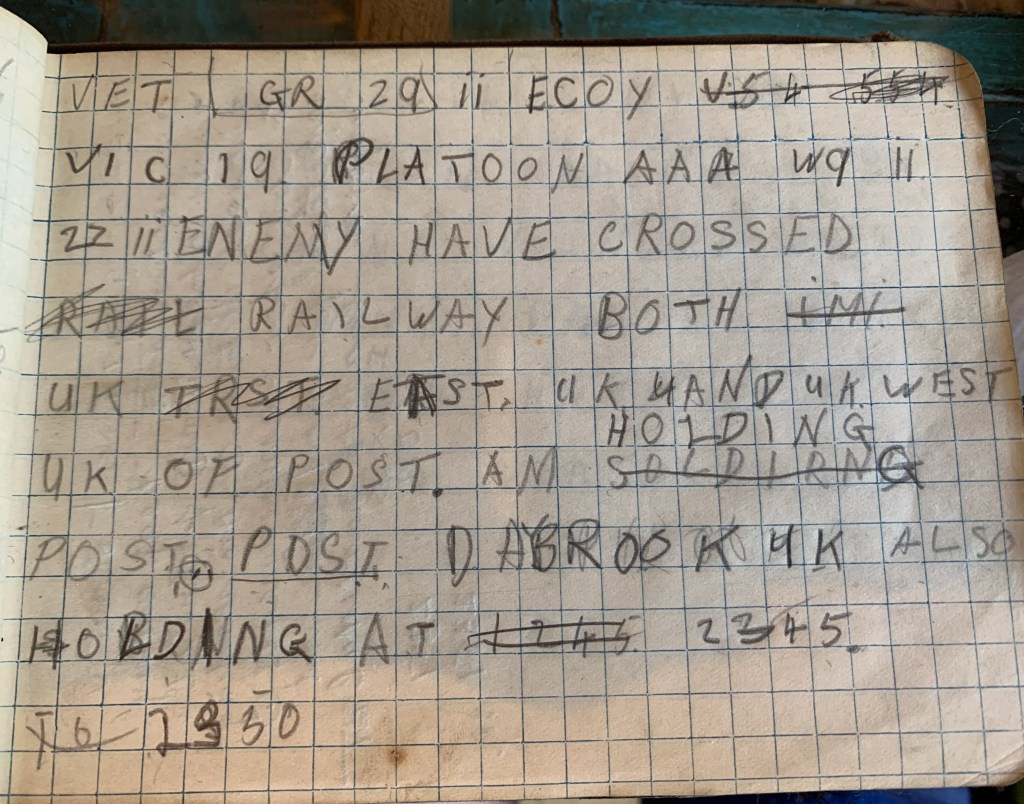 VET GR 29 ii ECOY V54
VIC 19 PLATOON AAA W9 11
22 ii ENEMY HAVE CROSSED
RAIL RAILWAY BOTH IMI
UK EAST. UK UAND UK WEST
HOLDING
UK OF POST. AM SOLDIRNG
POST. POST. DABROOK UK ALSO
HOLDING AT 1245 2345.
2330